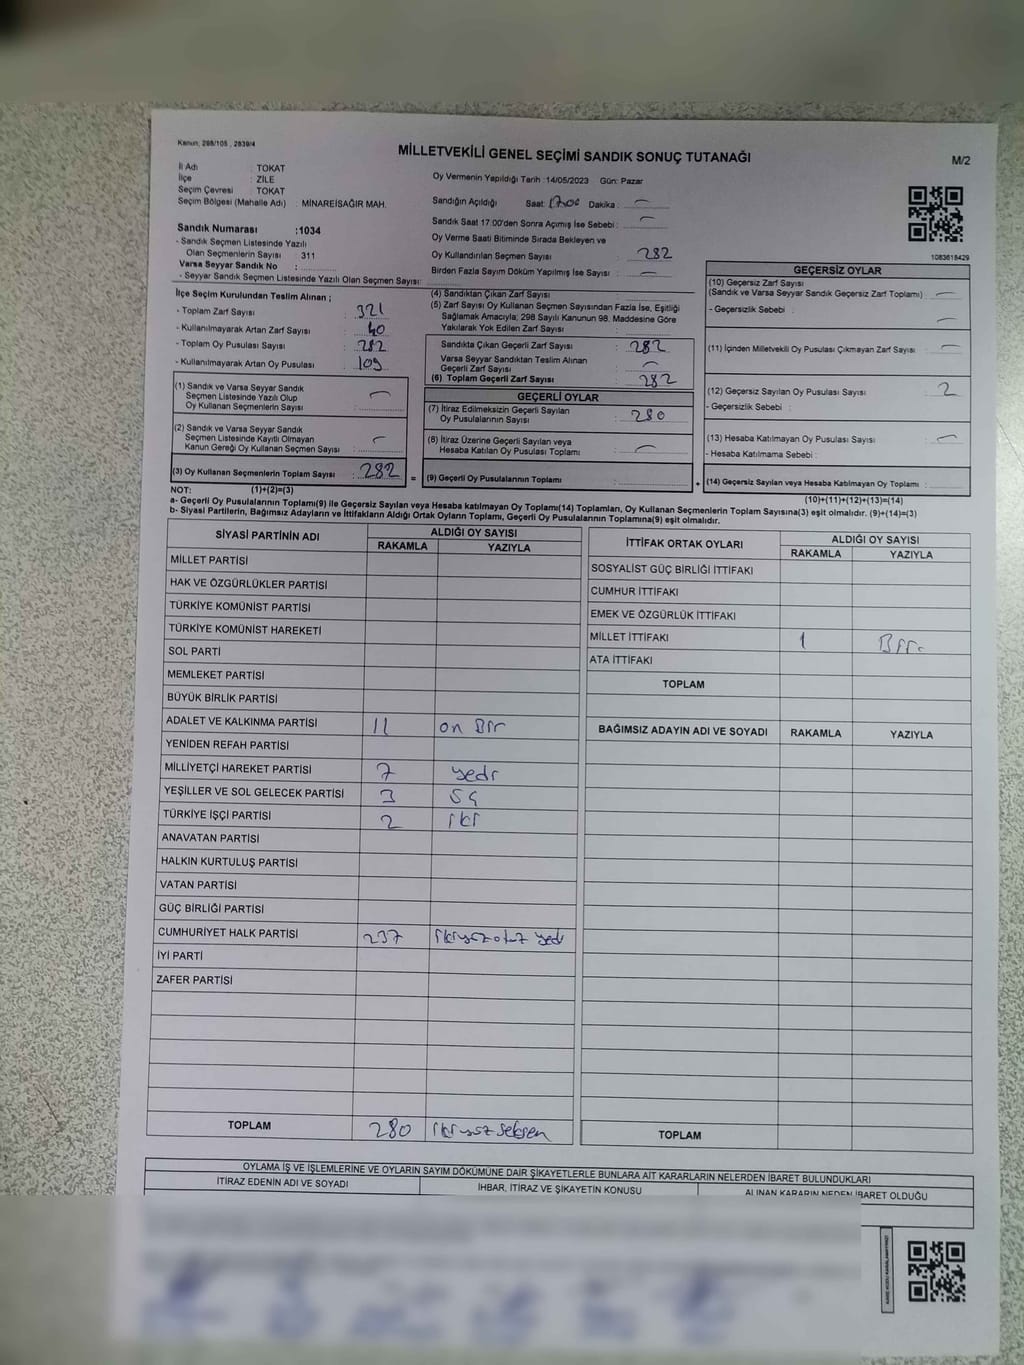 Kanun; 298/105 , 2839/4
MİLLETVEKİLİ GENEL SEÇİMİ SANDIK SONUÇ TUTANAĞI
M/2
İl Adı : TOKAT
İlçe : ZİLE
Seçim Çevresi : TOKAT
Seçim Bölgesi (Mahalle Adı) : MINAREİSAĞIR MAH.
Oy Vermenin Yapıldığı Tarih :14/05/2023 Gün: Pazar
Sandığın Açıldığı Saat: 1700 Dakika : —
Sandık Saat 17:00'den Sonra Açımış İse Sebebi : —
Oy Verme Saati Bitiminde Sırada Bekleyen ve
Oy Kullandırılan Seçmen Sayısı : 282
Birden Fazla Sayım Döküm Yapılmış İse Sayısı : —
Sandık Numarası :1034
- Sandık Seçmen Listesinde Yazılı
Olan Seçmenlerin Sayısı : 311
Varsa Seyyar Sandık No :
- Seyyar Sandık Seçmen Listesinde Yazılı Olan Seçmen Sayısı:
1083618429
İlçe Seçim Kurulundan Teslim Alınan ;
- Toplam Zarf Sayısı : 321
- Kullanılmayarak Artan Zarf Sayısı : 40
- Toplam Oy Pusulası Sayısı : 282
- Kullanılmayarak Artan Oy Pusulası : 109
(1) Sandık ve Varsa Seyyar Sandık
Seçmen Listesinde Yazılı Olup
Oy Kullanan Seçmenlerin Sayısı : —
(2) Sandık ve Varsa Seyyar Sandık
Seçmen Listesinde Kayıtlı Olmayan
Kanun Gereği Oy Kullanan Seçmen Sayısı : —
(3) Oy Kullanan Seçmenlerin Toplam Sayısı : 282
(4) Sandıktan Çıkan Zarf Sayısı
(5) Zarf Sayısı Oy Kullanan Seçmen Sayısından Fazla İse, Eşitliği
Sağlamak Amacıyla; 298 Sayılı Kanunun 98. Maddesine Göre
Yakılarak Yok Edilen Zarf Sayısı :
Sandıkta Çıkan Geçerli Zarf Sayısı : 282
Varsa Seyyar Sandıktan Teslim Alınan
Geçerli Zarf Sayısı : —
(6) Toplam Geçerli Zarf Sayısı : 282
GEÇERLİ OYLAR
(7) İtiraz Edilmeksizin Geçerli Sayılan
Oy Pusulalarının Sayısı : 280
(8) İtiraz Üzerine Geçerli Sayılan veya
Hesaba Katılan Oy Pusulası Toplamı : —
= (9) Geçerli Oy Pusulalarının Toplamı :
GEÇERSİZ OYLAR
(10) Geçersiz Zarf Sayısı
(Sandık ve Varsa Seyyar Sandık Geçersiz Zarf Toplamı) : —
- Geçersizlik Sebebi : —
(11) İçinden Milletvekili Oy Pusulası Çıkmayan Zarf Sayısı : —
(12) Geçersiz Sayılan Oy Pusulası Sayısı : 2
- Geçersizlik Sebebi :
(13) Hesaba Katılmayan Oy Pusulası Sayısı : —
- Hesaba Katılmama Sebebi :
+ (14) Geçersiz Sayılan veya Hesaba Katılmayan Oy Toplamı :
NOT: (1)+(2)=(3) (10)+(11)+(12)+(13)=(14)
a- Geçerli Oy Pusulalarının Toplamı(9) ile Geçersiz Sayılan veya Hesaba katılmayan Oy Toplamı(14) Toplamları, Oy Kullanan Seçmenlerin Toplam Sayısına(3) eşit olmalıdır. (9)+(14)=(3)
b- Siyasi Partilerin, Bağımsız Adayların ve İttifakların Aldığı Ortak Oyların Toplamı, Geçerli Oy Pusulalarının Toplamına(9) eşit olmalıdır.
SİYASİ PARTİNİN ADI ALDIĞI OY SAYISI
RAKAMLA YAZIYLA
MİLLET PARTİSİ
HAK VE ÖZGÜRLÜKLER PARTİSİ
TÜRKİYE KOMÜNİST PARTİSİ
TÜRKİYE KOMÜNİST HAREKETİ
SOL PARTİ
MEMLEKET PARTİSİ
BÜYÜK BİRLİK PARTİSİ
ADALET VE KALKINMA PARTİSİ 11 on Bir
YENİDEN REFAH PARTİSİ
MİLLİYETÇİ HAREKET PARTİSİ 7 yedi
YEŞİLLER VE SOL GELECEK PARTİSİ 3
TÜRKİYE İŞÇİ PARTİSİ 2 iki
ANAVATAN PARTİSİ
HALKIN KURTULUŞ PARTİSİ
VATAN PARTİSİ
GÜÇ BİRLİĞİ PARTİSİ
CUMHURİYET HALK PARTİSİ 237 ikiyüzotuz yedi
İYİ PARTİ
ZAFER PARTİSİ
TOPLAM 280 ikiyüz seksen
İTTİFAK ORTAK OYLARI ALDIĞI OY SAYISI
RAKAMLA YAZIYLA
SOSYALİST GÜÇ BİRLİĞİ İTTİFAKI
CUMHUR İTTİFAKI
EMEK VE ÖZGÜRLÜK İTTİFAKI
MİLLET İTTİFAKI 1 Bir.
ATA İTTİFAKI
TOPLAM
BAĞIMSIZ ADAYIN ADI VE SOYADI RAKAMLA YAZIYLA
TOPLAM
OYLAMA İŞ VE İŞLEMLERİNE VE OYLARIN SAYIM DÖKÜMÜNE DAİR ŞİKAYETLERLE BUNLARA AİT KARARLARIN NELERDEN İBARET BULUNDUKLARI
İTİRAZ EDENİN ADI VE SOYADI İHBAR, İTİRAZ VE ŞİKAYETİN KONUSU ALINAN KARARIN NEDEN İBARET OLDUĞU